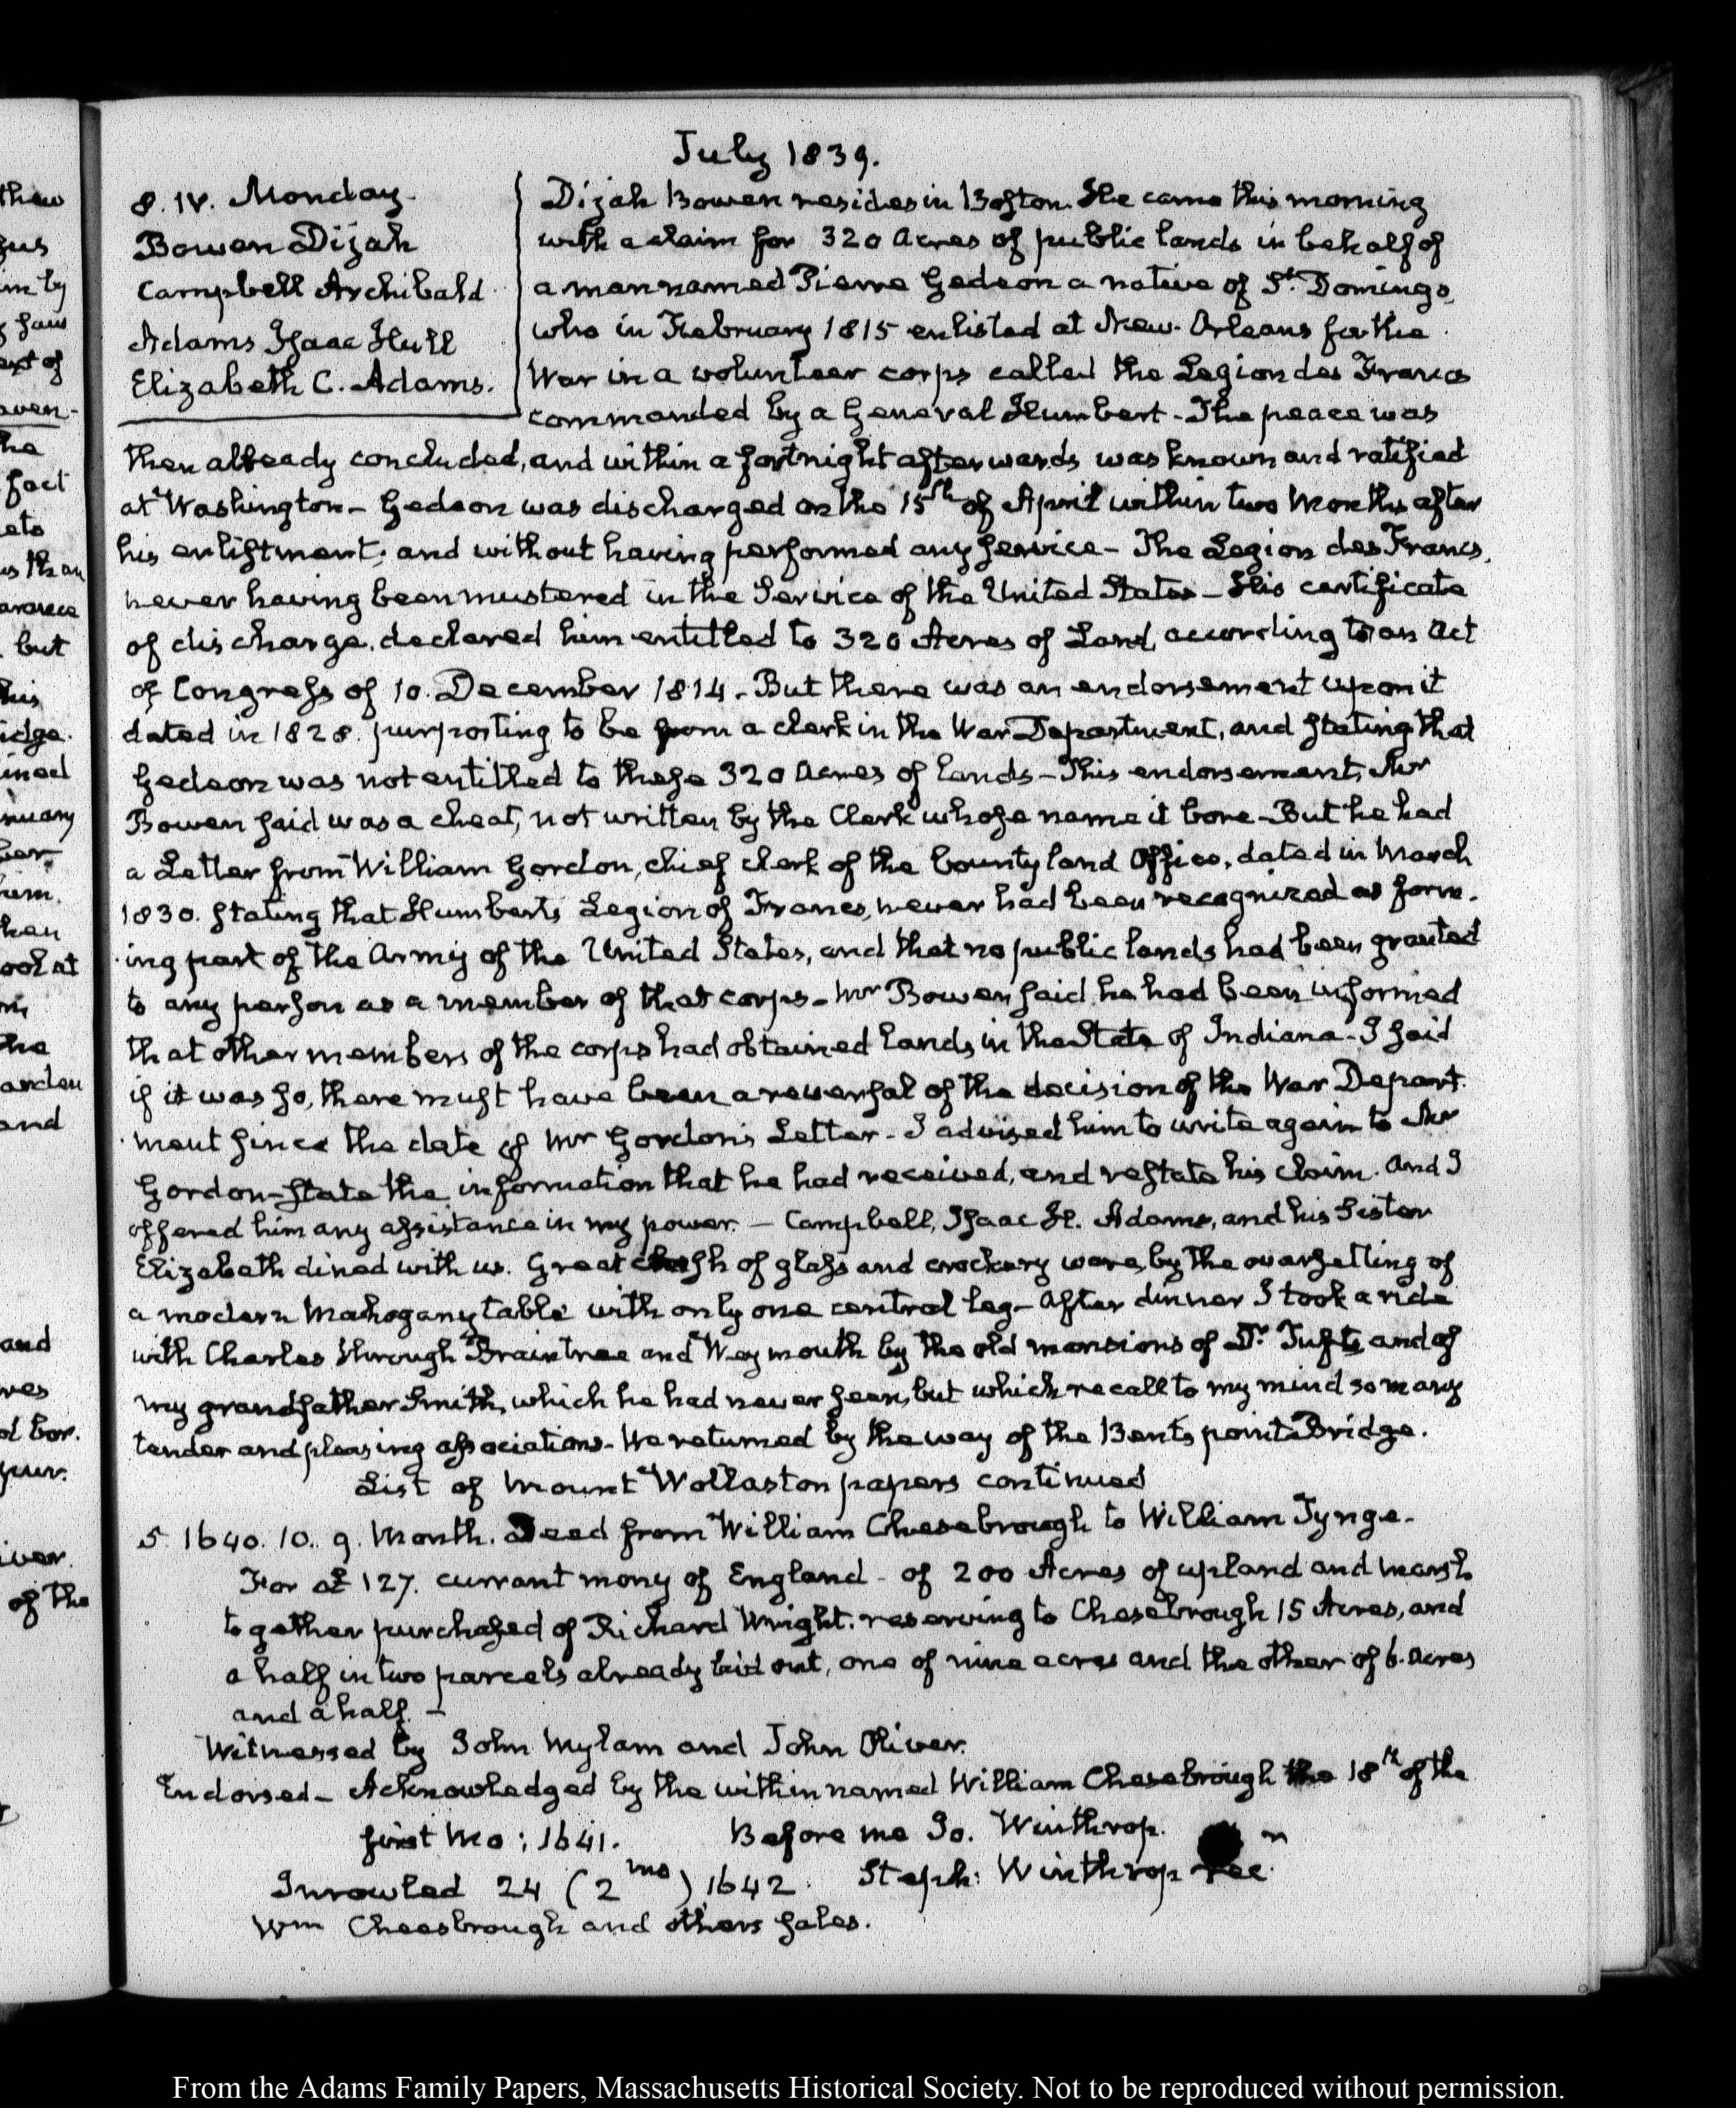 July 1839.
8. IV. Monday.
Bowen Dijah
Campbell Archibald
Adams Isaac Hull
Elizabeth C. Adams.
Dijah Bowen resides in Boston. He came this morning
with a claim for 320 Acres of public lands in behalf of
a man named Pierre Gedeon a native of St. Domingo,
who in February 1815 enlisted at New-Orleans for the
War in a volunteer corps called the Legion des Francs
commanded by a General Humbert - The peace was
then already concluded, and within a fortnight afterwards was known and ratified
at Washington - Gedeon was discharged on the 15th of April within two Months after
his enlistment; and without having performed any service - The Legion des Francs,
never having been mustered in the Service of the United States - His certificate
of discharge, declared him entitled to 320 Acres of Land, according to an Act
of Congress of 10. December 1814. But there was an endorsement upon it
dated in 1828. purporting to be from a clerk in the War Department, and stating that
Gedeon was not entitled to these 320 Acres of lands - This endorsement, Mr
Bowen said was a cheat, not written by the Clerk whose name it bore - But he had
a Letter from William Gordon, chief clerk of the bounty land Office, dated in March
1830. stating that Humberts Legion of Francs, never had been recognized as form-
ing part of the Army of the United States, and that no public lands had been granted
to any person as a member of that corps - Mr Bowen said he had been informed
that other members of the corps had obtained lands in the State of Indiana - I said
if it was so, there must have been a reversal of the decision of the War Depart-
ment since the date of Mr Gordon's Letter - I advised him to write again to Mr
Gordon - state the information that he had received, and restate his claim. And I
offered him any assistance in my power. - Campbell, Isaac H. Adams, and his Sister
Elizabeth dined with us. Great crash of glass and crockery ware, by the oversetting of
a modern Mahogany table with only one central leg - After dinner I took a ride
with Charles through Braintree and Weymouth by the old mansions of Dr. Tufts and of
my grandfather Smith, which he had never seen, but which recall to my mind so many
tender and pleasing associations - We returned by the way of the Bents point Bridge.
List of Mount Wollaston papers continued
5. 1640. 10. 9. Month. Deed from William Chesebrough to William Tynge.
For £127. currant mony of England - of 200 Acres of upland and marsh
together purchased of Richard Wright. reserving to Chesebrough 15 Acres, and
a half in two parcels already laid out, one of nine acres and the other of 6. Acres
and a half. -
Witnessed by John Mylam and John Oliver.
Endorsed - Acknowledged by the within named William Chesebrough the 18th of the
first Mo: 1641. Before me Jo. Winthrop.
Inrowled 24 (2mo) 1642. Steph: Winthrop Rec
Wm Cheesbrough and others sales.
From the Adams Family Papers, Massachusetts Historical Society. Not to be reproduced without permission.